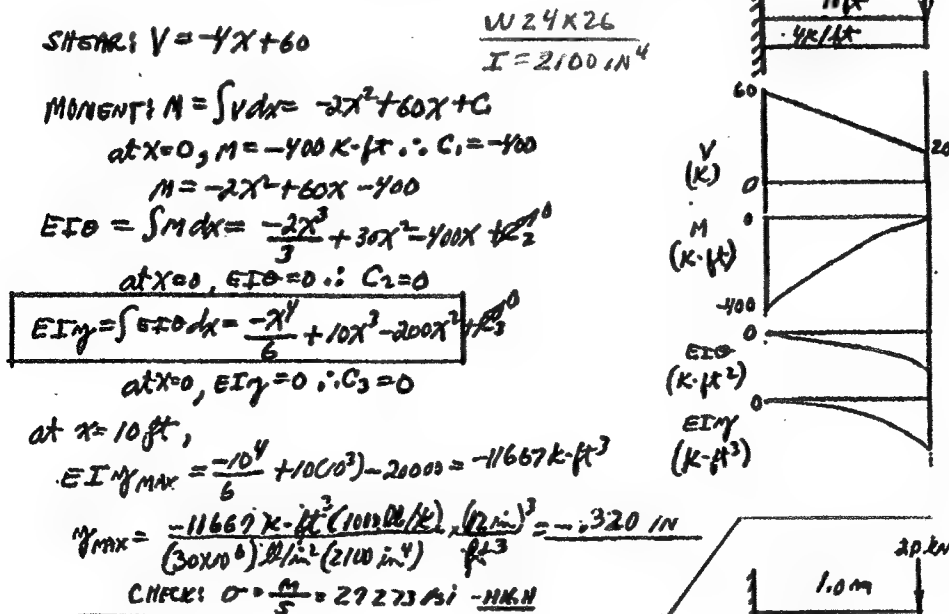 SHEAR: V = -4X+60
W24X26
I = 2100 IN⁴
MOMENT: M = ∫Vdx = -2x²+60x+C₁
at x=0, M=-400 K-ft ∴ C₁=-400
M = -2X²+60X-400
EIθ = ∫Mdx = -2x³/3 + 30x²-400x + C₂ 0
at x=0, EIθ=0 ∴ C₂=0
EIy = ∫EIθdx = -x⁴/6 + 10x³-200x² + C₃ 0
at x=0, EIy=0 ∴ C₃=0
at x=10 ft,
EIy MAX = -10⁴/6 + 10(10³)-20000 = -11667 k-ft³
y MAX = -11667 K-ft³(1000 lb/k)/(30X10⁶) lb/in²(2100 in⁴) x (12 in)³/ft³ = -.320 IN
CHECK: σ = M/S = 27273 PSI -HIGH
.4K/ft
60
V
(K)
20
0
0
M
(K-ft)
-400
0
EIθ
(K-ft²)
0
EIy
(K-ft³)
20 kN
1.0 m